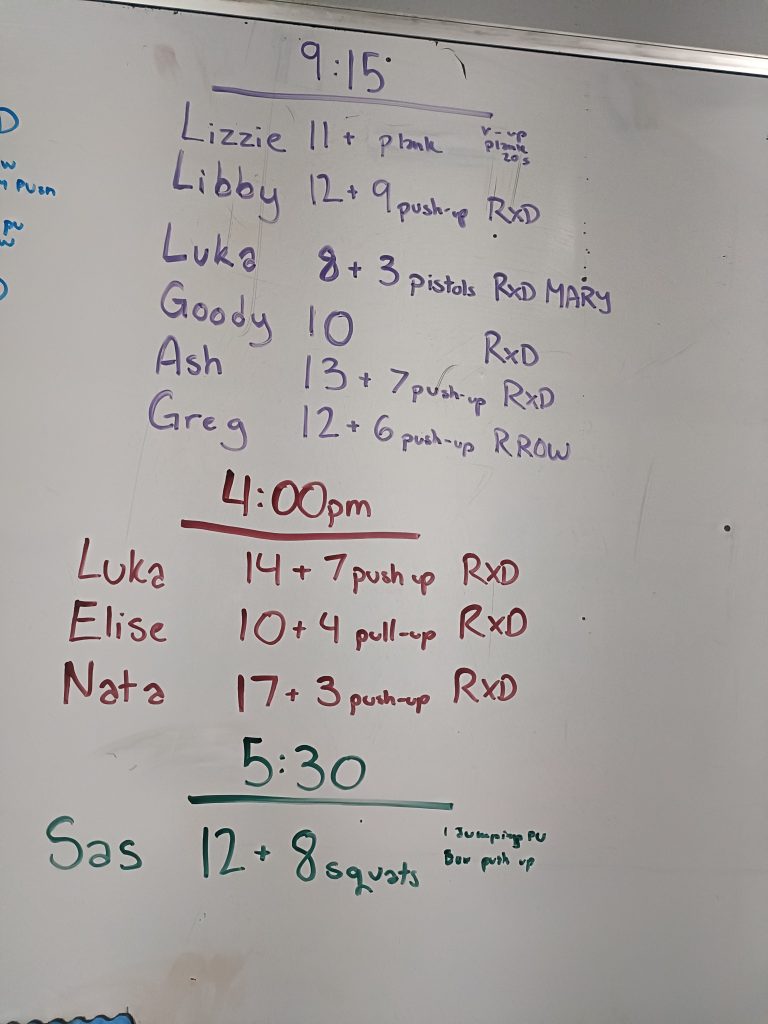 9:15
Lizzie 11 + plank v-up
plank
20s
Libby 12 + 9 push-up RxD
Luka 8 + 3 pistols RxD MARY
Goody 10 RxD
Ash 13 + 7 push-up RxD
Greg 12 + 6 push-up RROW
4:00pm
Luka 14 + 7 push up RxD
Elise 10 + 4 pull-up RxD
Nata 17 + 3 push-up RxD
5:30
Sas 12 + 8 squats 1 Jumping PU
push up
D
w
push
pu
w